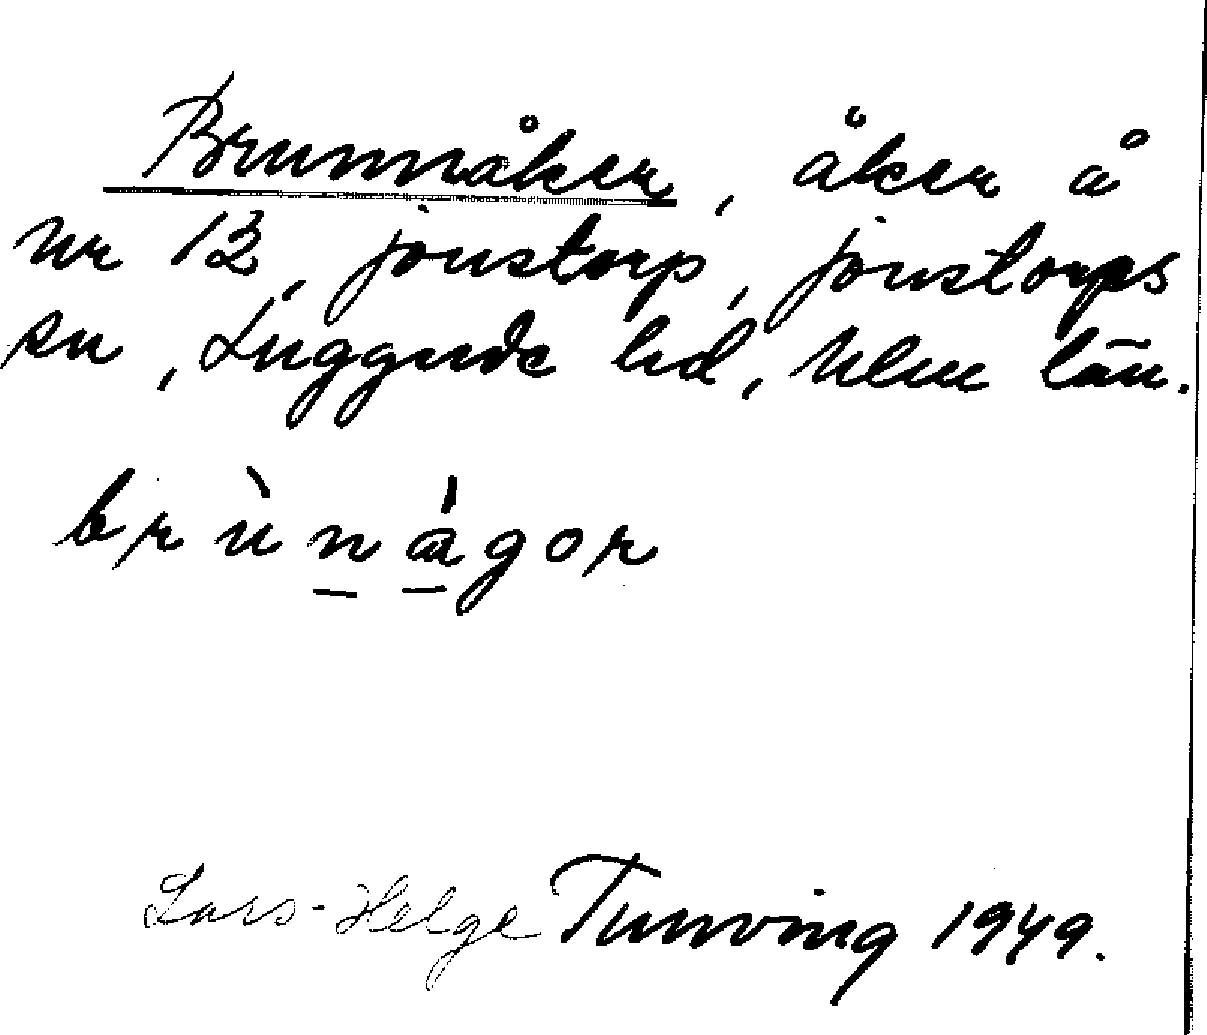 Brunnåker, åker å
nr 13, Jonstorp, Jonstorps
sn, Luggude hd, Mlm län.
brùnágor
Lars-Helge Tunving 1949.